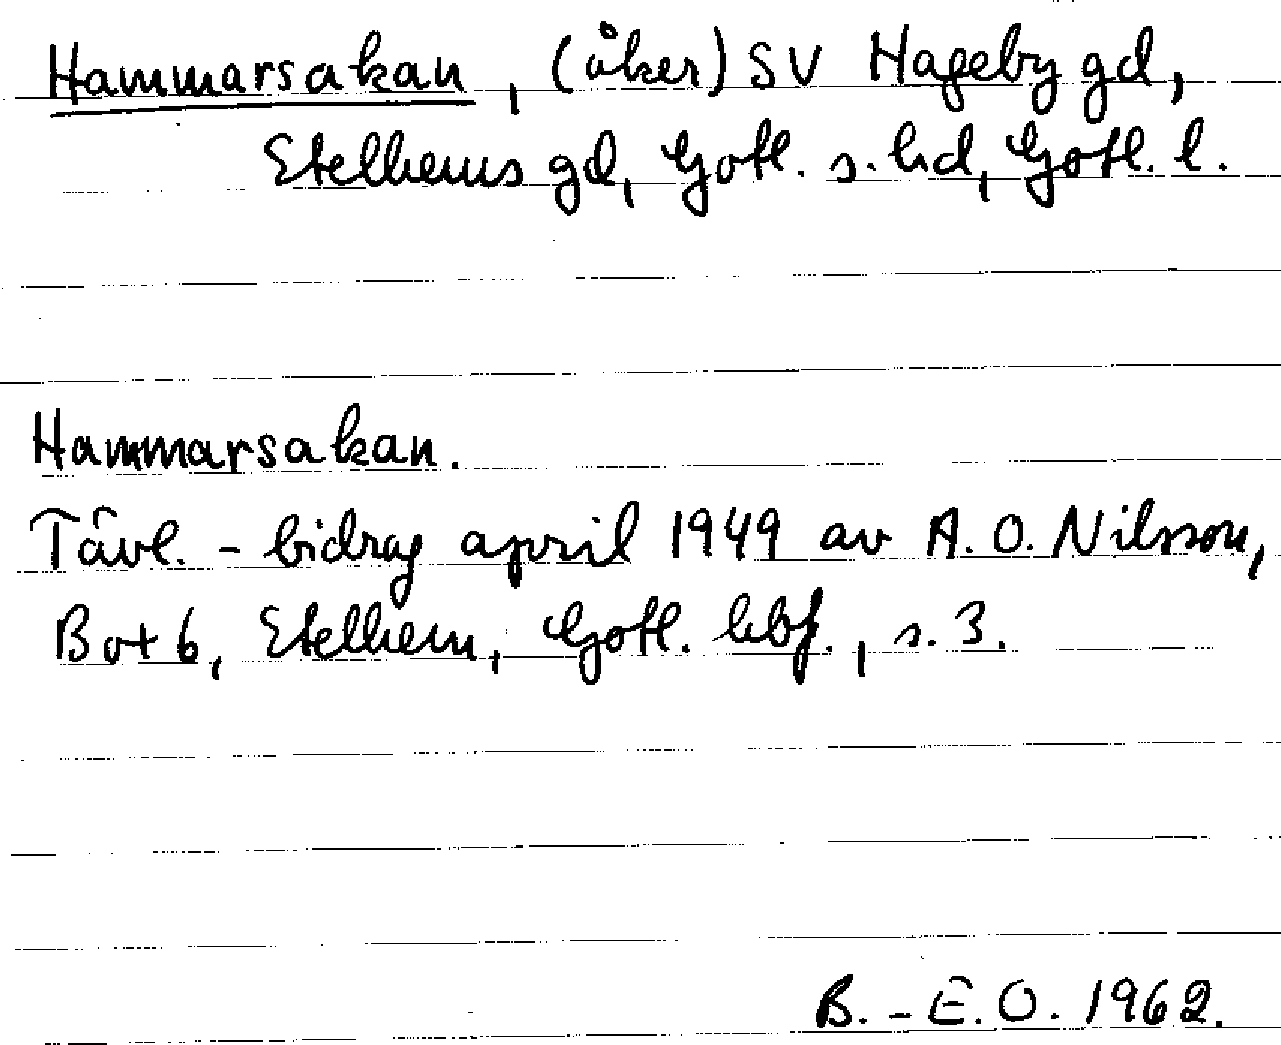 Hammarsakan, (åker) SV Hageby gd,
Etelhems gd, Gotl. s. hd, Gotl. l.
Hammarsakan.
Tävl. - bidrag april 1949 av A. O. Nilsson,
Box 6, Etelhem, Gotl. hbf., s. 3.
B. - E. O. 1962.